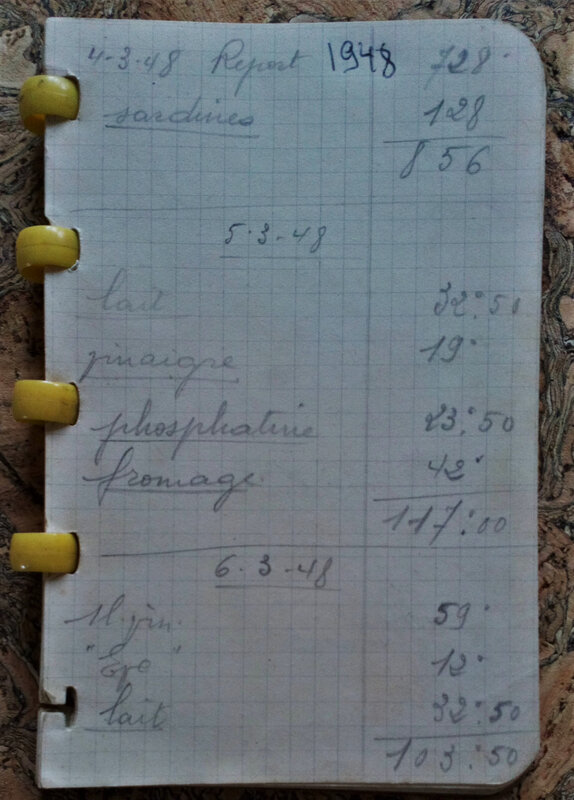 4-3-48 Report 1948 728·
sardines 128
856
5·3-48
lait 32:50
vinaigre 19·
phosphatine 23:50
fromage 42·
117:00
6·3-48
1l. vin. 59·
" " 12·
lait 32:50
103:50